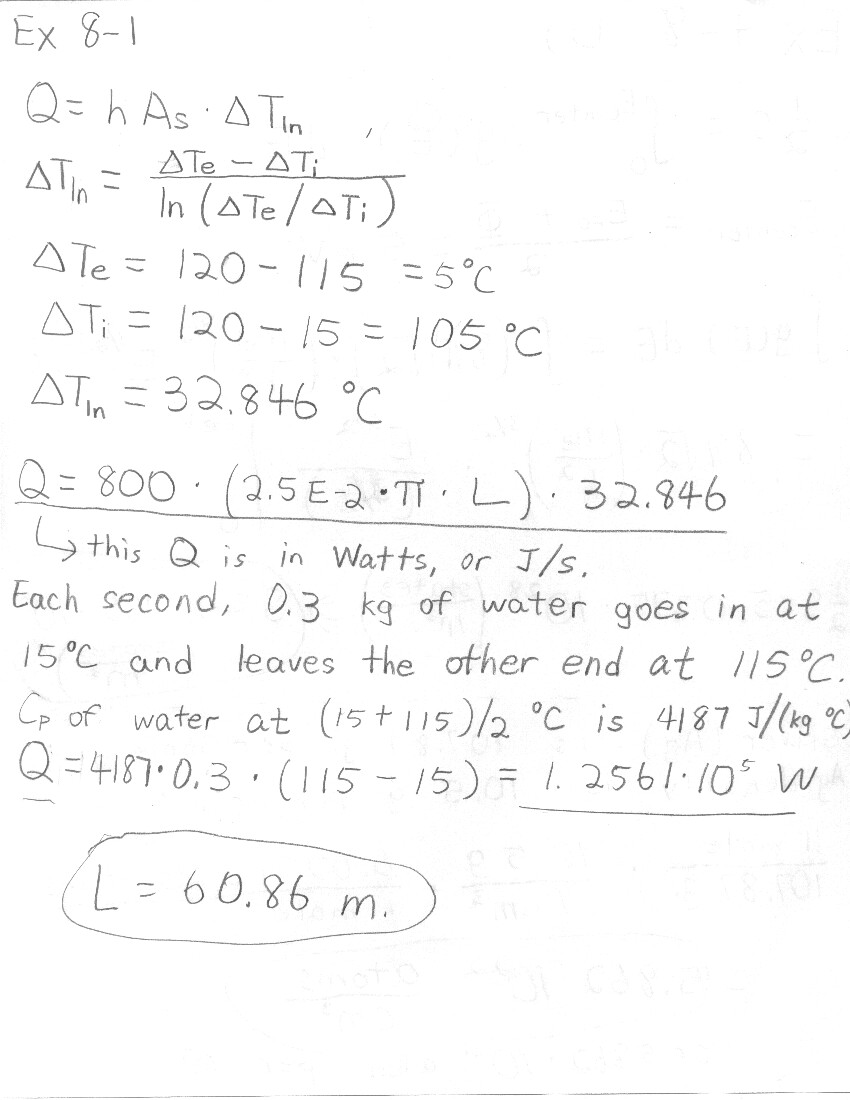 Ex 8-1
Q = h As · ΔTln
ΔTln = ΔTe − ΔTi / ln (ΔTe / ΔTi)
ΔTe = 120 − 115 = 5°C
ΔTi = 120 − 15 = 105 °C
ΔTln = 32.846 °C
Q = 800 · (2.5E-2 · π · L) · 32.846
↳ this Q is in Watts, or J/s.
Each second, 0.3 kg of water goes in at
15°C and leaves the other end at 115°C.
Cp of water at (15+115)/2 °C is 4187 J/(kg °C)
Q = 4187 · 0.3 · (115 − 15) = 1.2561 · 10⁵ W
L = 60.86 m.